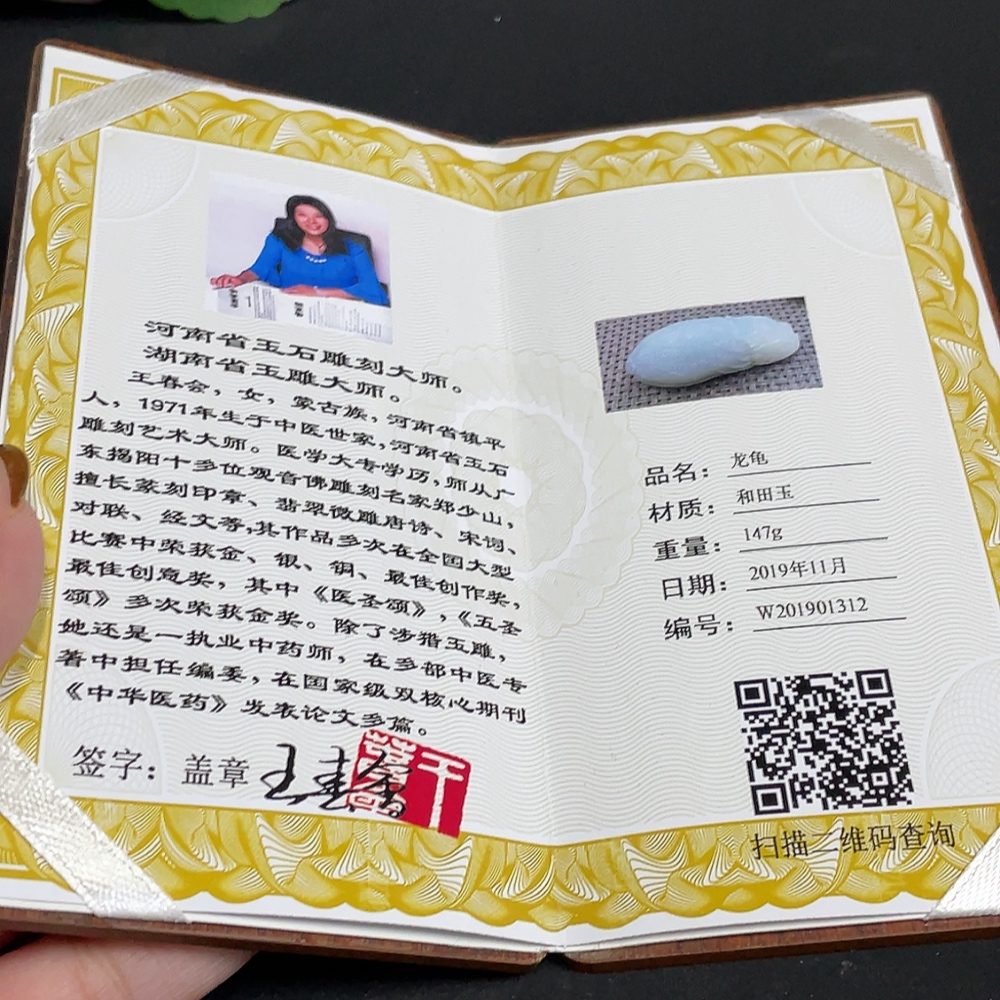 河南省玉石雕刻大师。
湖南省玉雕大师。
王春会，女，蒙古族，河南省镇平
人，1971年生于中医世家，河南省玉石
雕刻艺术大师。医学大专学历，师从广
东揭阳十多位观音佛雕刻名家郑少山，
擅长篆刻印章、翡翠微雕唐诗、宋词、
对联、经文等，其作品多次在全国大型
比赛中荣获金、银、铜、最佳创作奖，
最佳创意奖，其中《医圣颂》，《五圣
颂》多次荣获金奖。除了涉猎玉雕，
她还是一执业中药师，在多部中医专
著中担任编委，在国家级双核心期刊
《中华医药》发表论文多篇。
签字：盖章
品名：龙龟
材质：和田玉
重量：147g
日期：2019年11月
编号：W201901312
扫描二维码查询